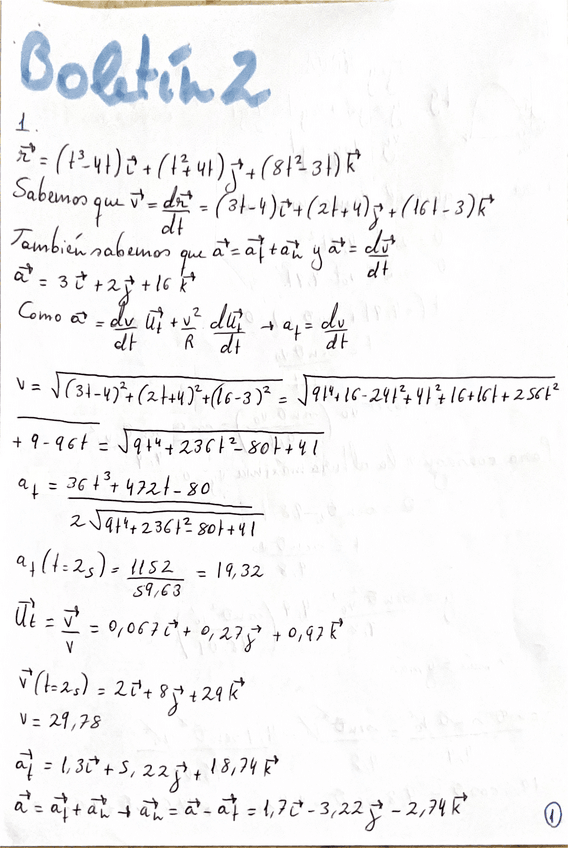 Boletín 2
1.
r⃗ = (t³-4t) i⃗ + (t²+4t) j⃗ + (8t²-3t) k⃗
Sabemos que v⃗ = dr⃗/dt = (3t-4) i⃗ + (2t+4) j⃗ + (16t-3) k⃗
También sabemos que a⃗ = a⃗t + a⃗n y a⃗ = dv⃗/dt
a⃗ = 3 i⃗ + 2 j⃗ + 16 k⃗
Como a⃗ = dv/dt u⃗t + v²/R du⃗t/dt → at = dv/dt
v = √((3t-4)² + (2t+4)² + (16-3)²) = √(9t⁴+16-24t²+4t²+16+16t+256t²
+ 9-96t) = √(9t⁴+236t²-80t+41)
at = (36t³+472t-80) / (2√(9t⁴+236t²-80t+41))
at (t=2s) = 1152/59,63 = 19,32
u⃗t = v⃗/v = 0,067 i⃗ + 0,27 j⃗ + 0,97 k⃗
v⃗ (t=2s) = 2 i⃗ + 8 j⃗ + 29 k⃗
v = 29,78
a⃗t = 1,3 i⃗ + 5,22 j⃗ + 18,74 k⃗
a⃗ = a⃗t + a⃗n → a⃗n = a⃗ - a⃗t = 1,7 i⃗ - 3,22 j⃗ - 2,74 k⃗
1